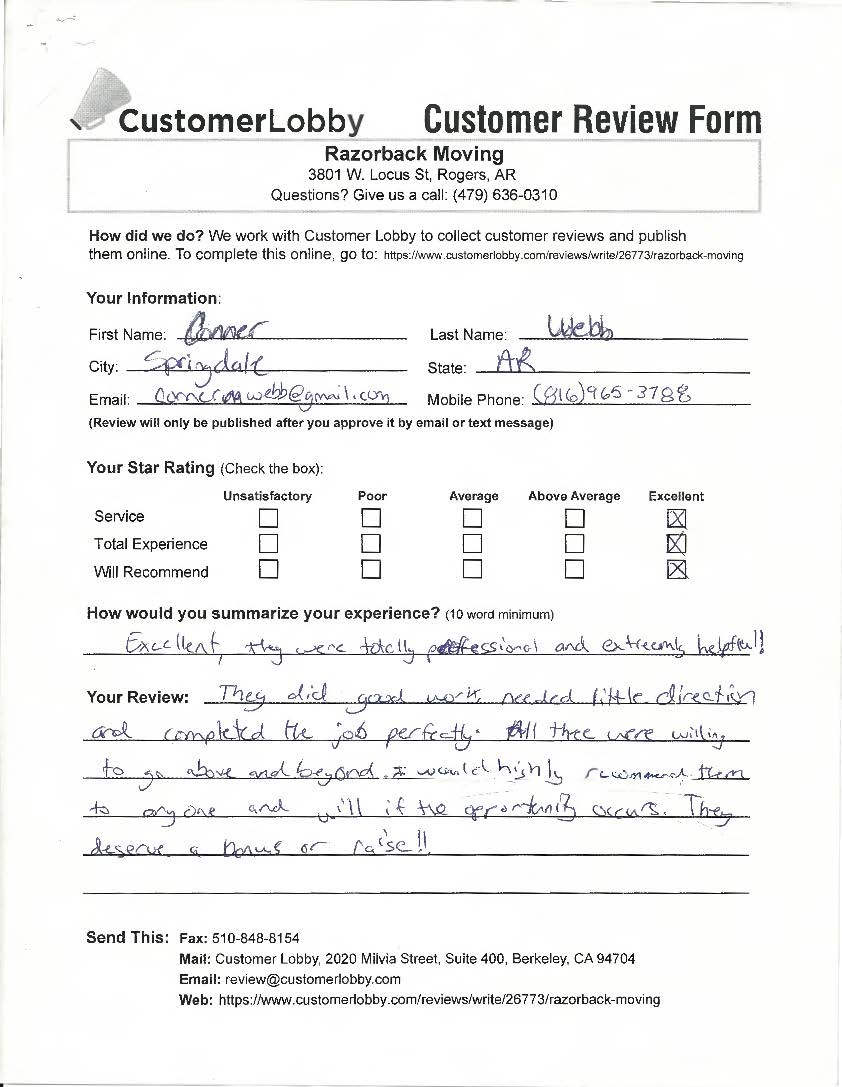 CustomerLobby Customer Review Form
Razorback Moving
3801 W. Locus St, Rogers, AR
Questions? Give us a call: (479) 636-0310
How did we do? We work with Customer Lobby to collect customer reviews and publish
them online. To complete this online, go to: https://www.customerlobby.com/reviews/write/26773/razorback-moving
Your Information:
First Name: Conner Last Name: Webb
City: Springdale State: AR
Email: Mobile Phone: (816)965-3788
(Review will only be published after you approve it by email or text message)
Your Star Rating (Check the box):
Unsatisfactory Poor Average Above Average Excellent
Service ☐ ☐ ☐ ☐ ☒
Total Experience ☐ ☐ ☐ ☐ ☒
Will Recommend ☐ ☐ ☐ ☐ ☒
How would you summarize your experience? (10 word minimum)
Excellent, they were totally professional and extreemly helpful!!
Your Review: They did good work, needed little direction
and completed the job perfectly. All three were willing
to go above and beyond. I would highly recommend them
to anyone and will if the opportunity occurs. They
deserve a bonus or raise!!
Send This: Fax: 510-848-8154
Mail: Customer Lobby, 2020 Milvia Street, Suite 400, Berkeley, CA 94704
Email: review@customerlobby.com
Web: https://www.customerlobby.com/reviews/write/26773/razorback-moving